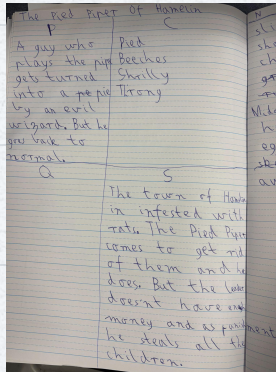 The Pied Piper Of Hamelin
P
A guy who
plays the pipe
gets turned
into a pipe
by an evil
wizard. But he
goes back to
normal.
C
Pied
Beeches
Shrilly
Throng
Q
S
The town of Hamelin
in infested with
rats. The Pied Piper
comes to get rid
of them and he
does. But the leader
doesnt have
money and as punishment
he steals all the
children.